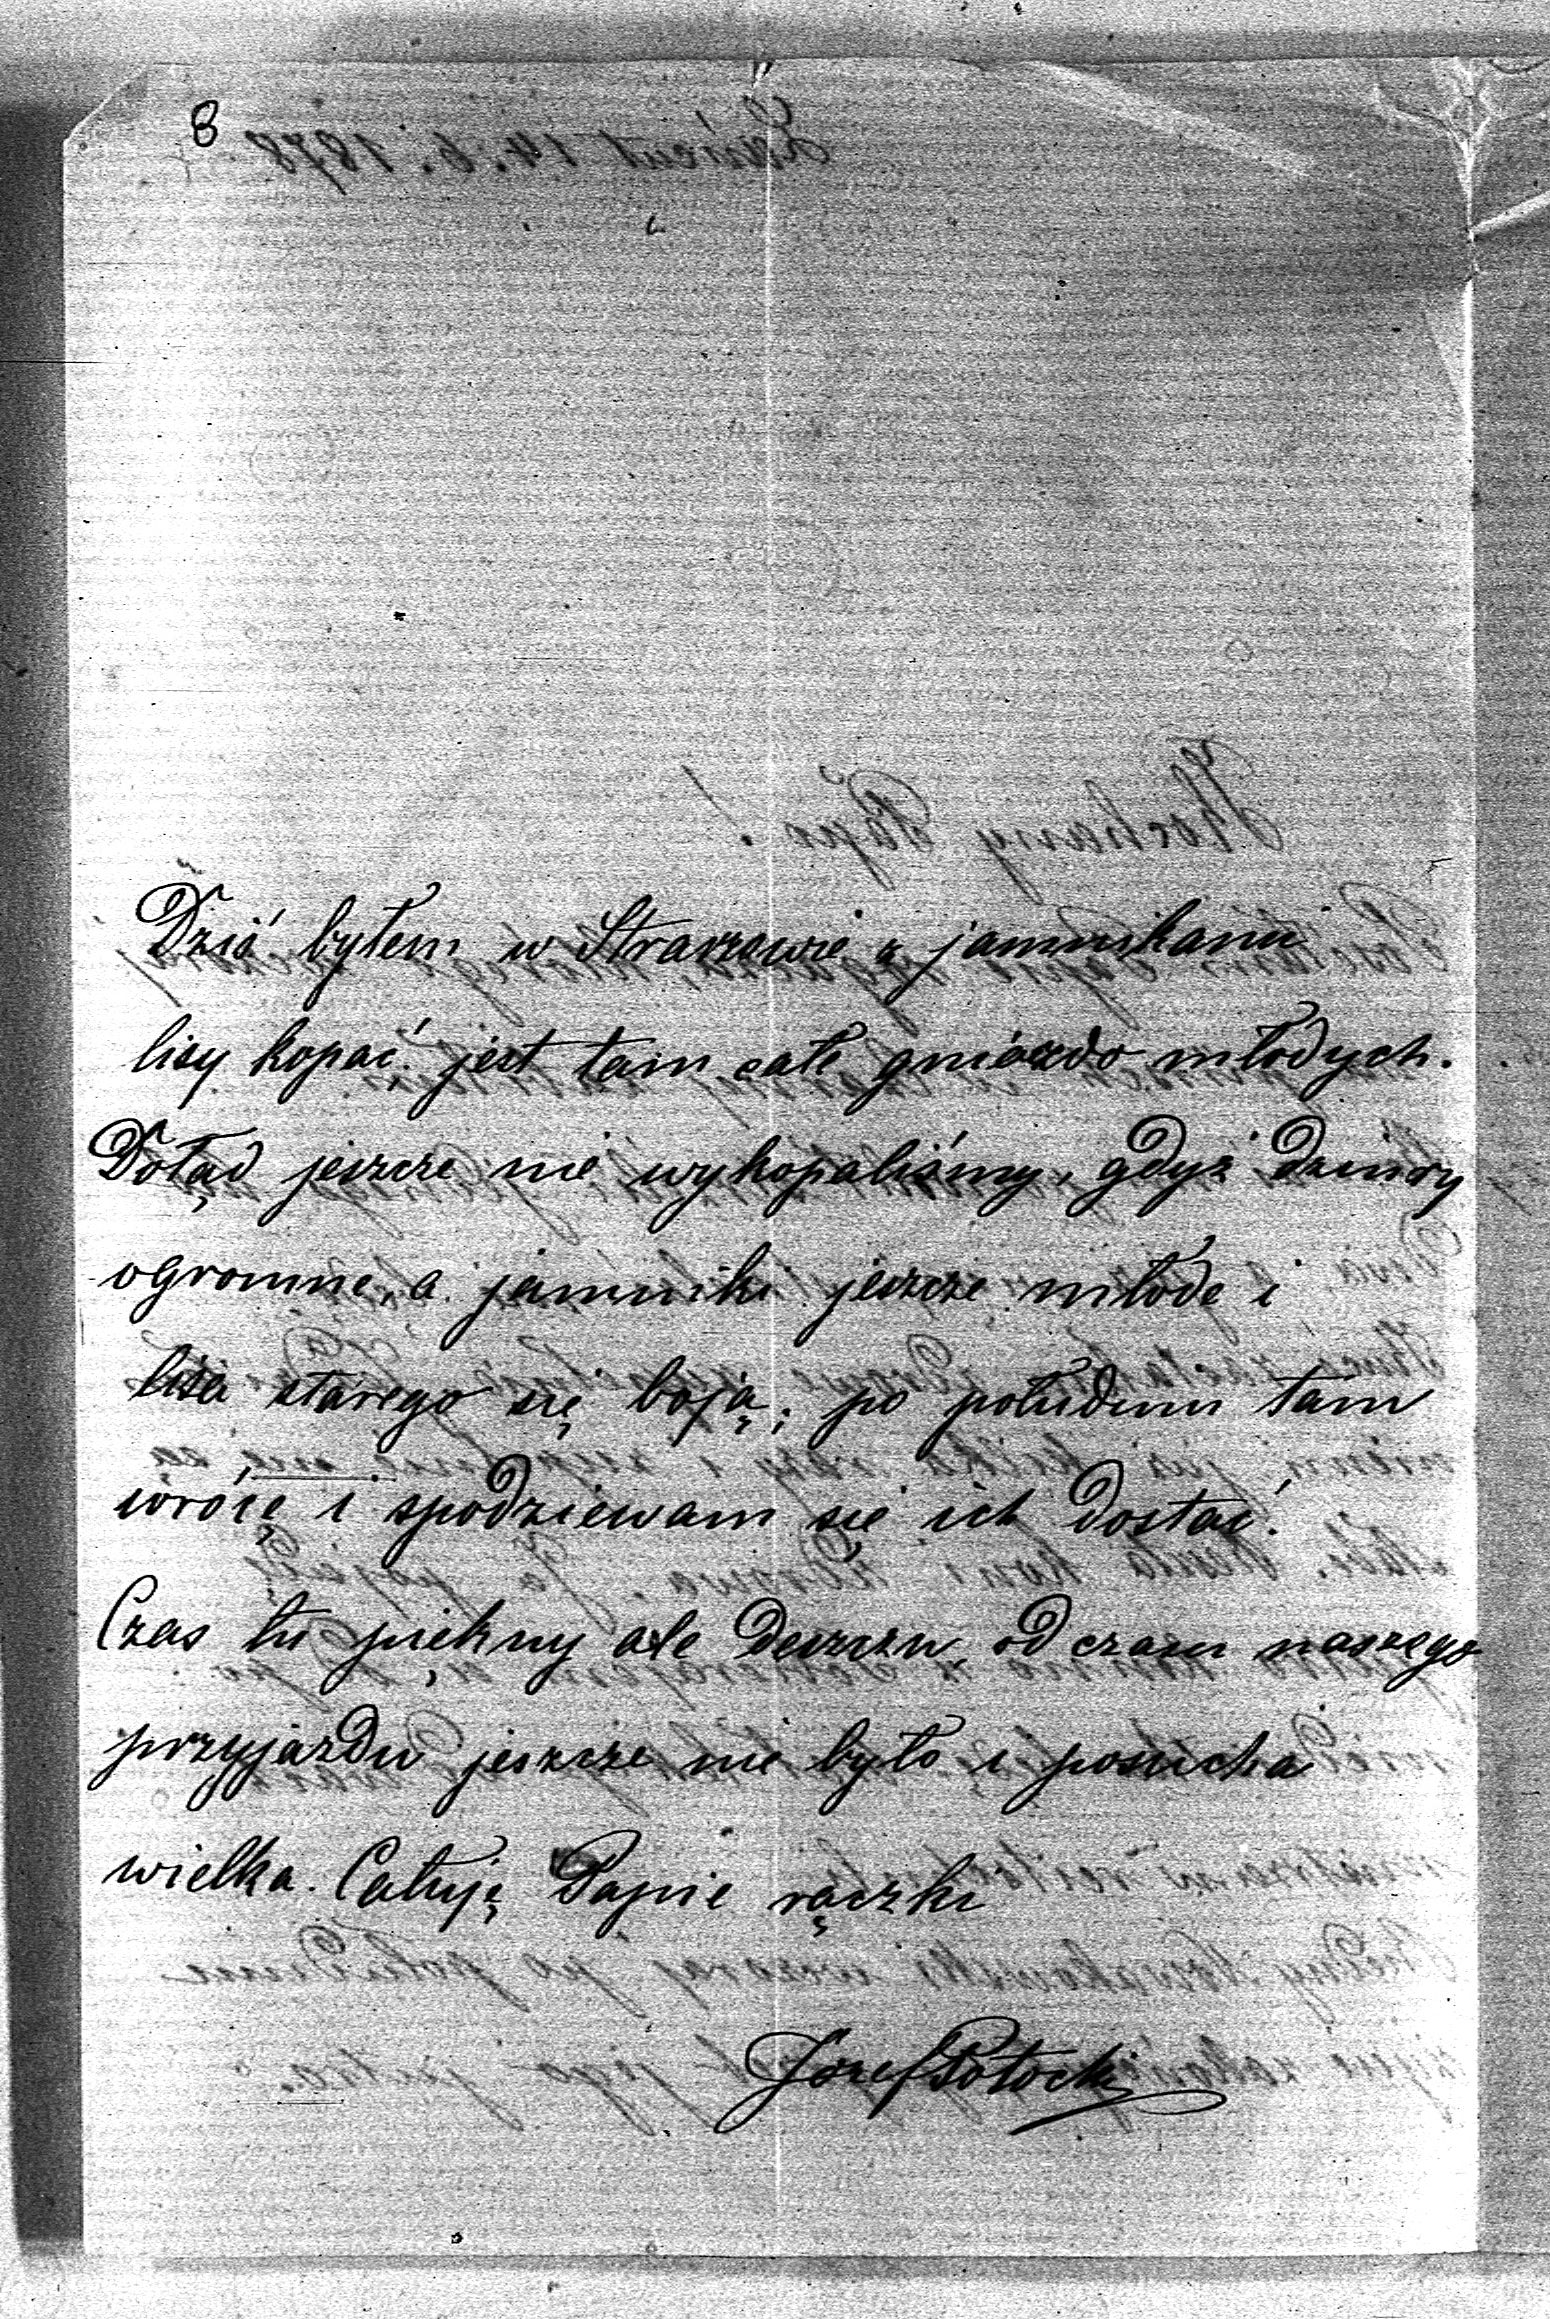 8
Dziś byłem w Strazewie z jamnikami
lisy kopać. jest tam całe gniazdo młodych.
Dotąd jeszcze nie wykopaliśmy, gdyż dziury
ogromne, a jamniki jeszcze młode i
lisa starego się boją; po południu tam
wrócę i spodziewam się ich dostać.
Czas tu piękny ale deszczu od czasu naszego
przyjazdu jeszcze nie było i posucha
wielka. Całuję Papie rączki
Józef Potocki